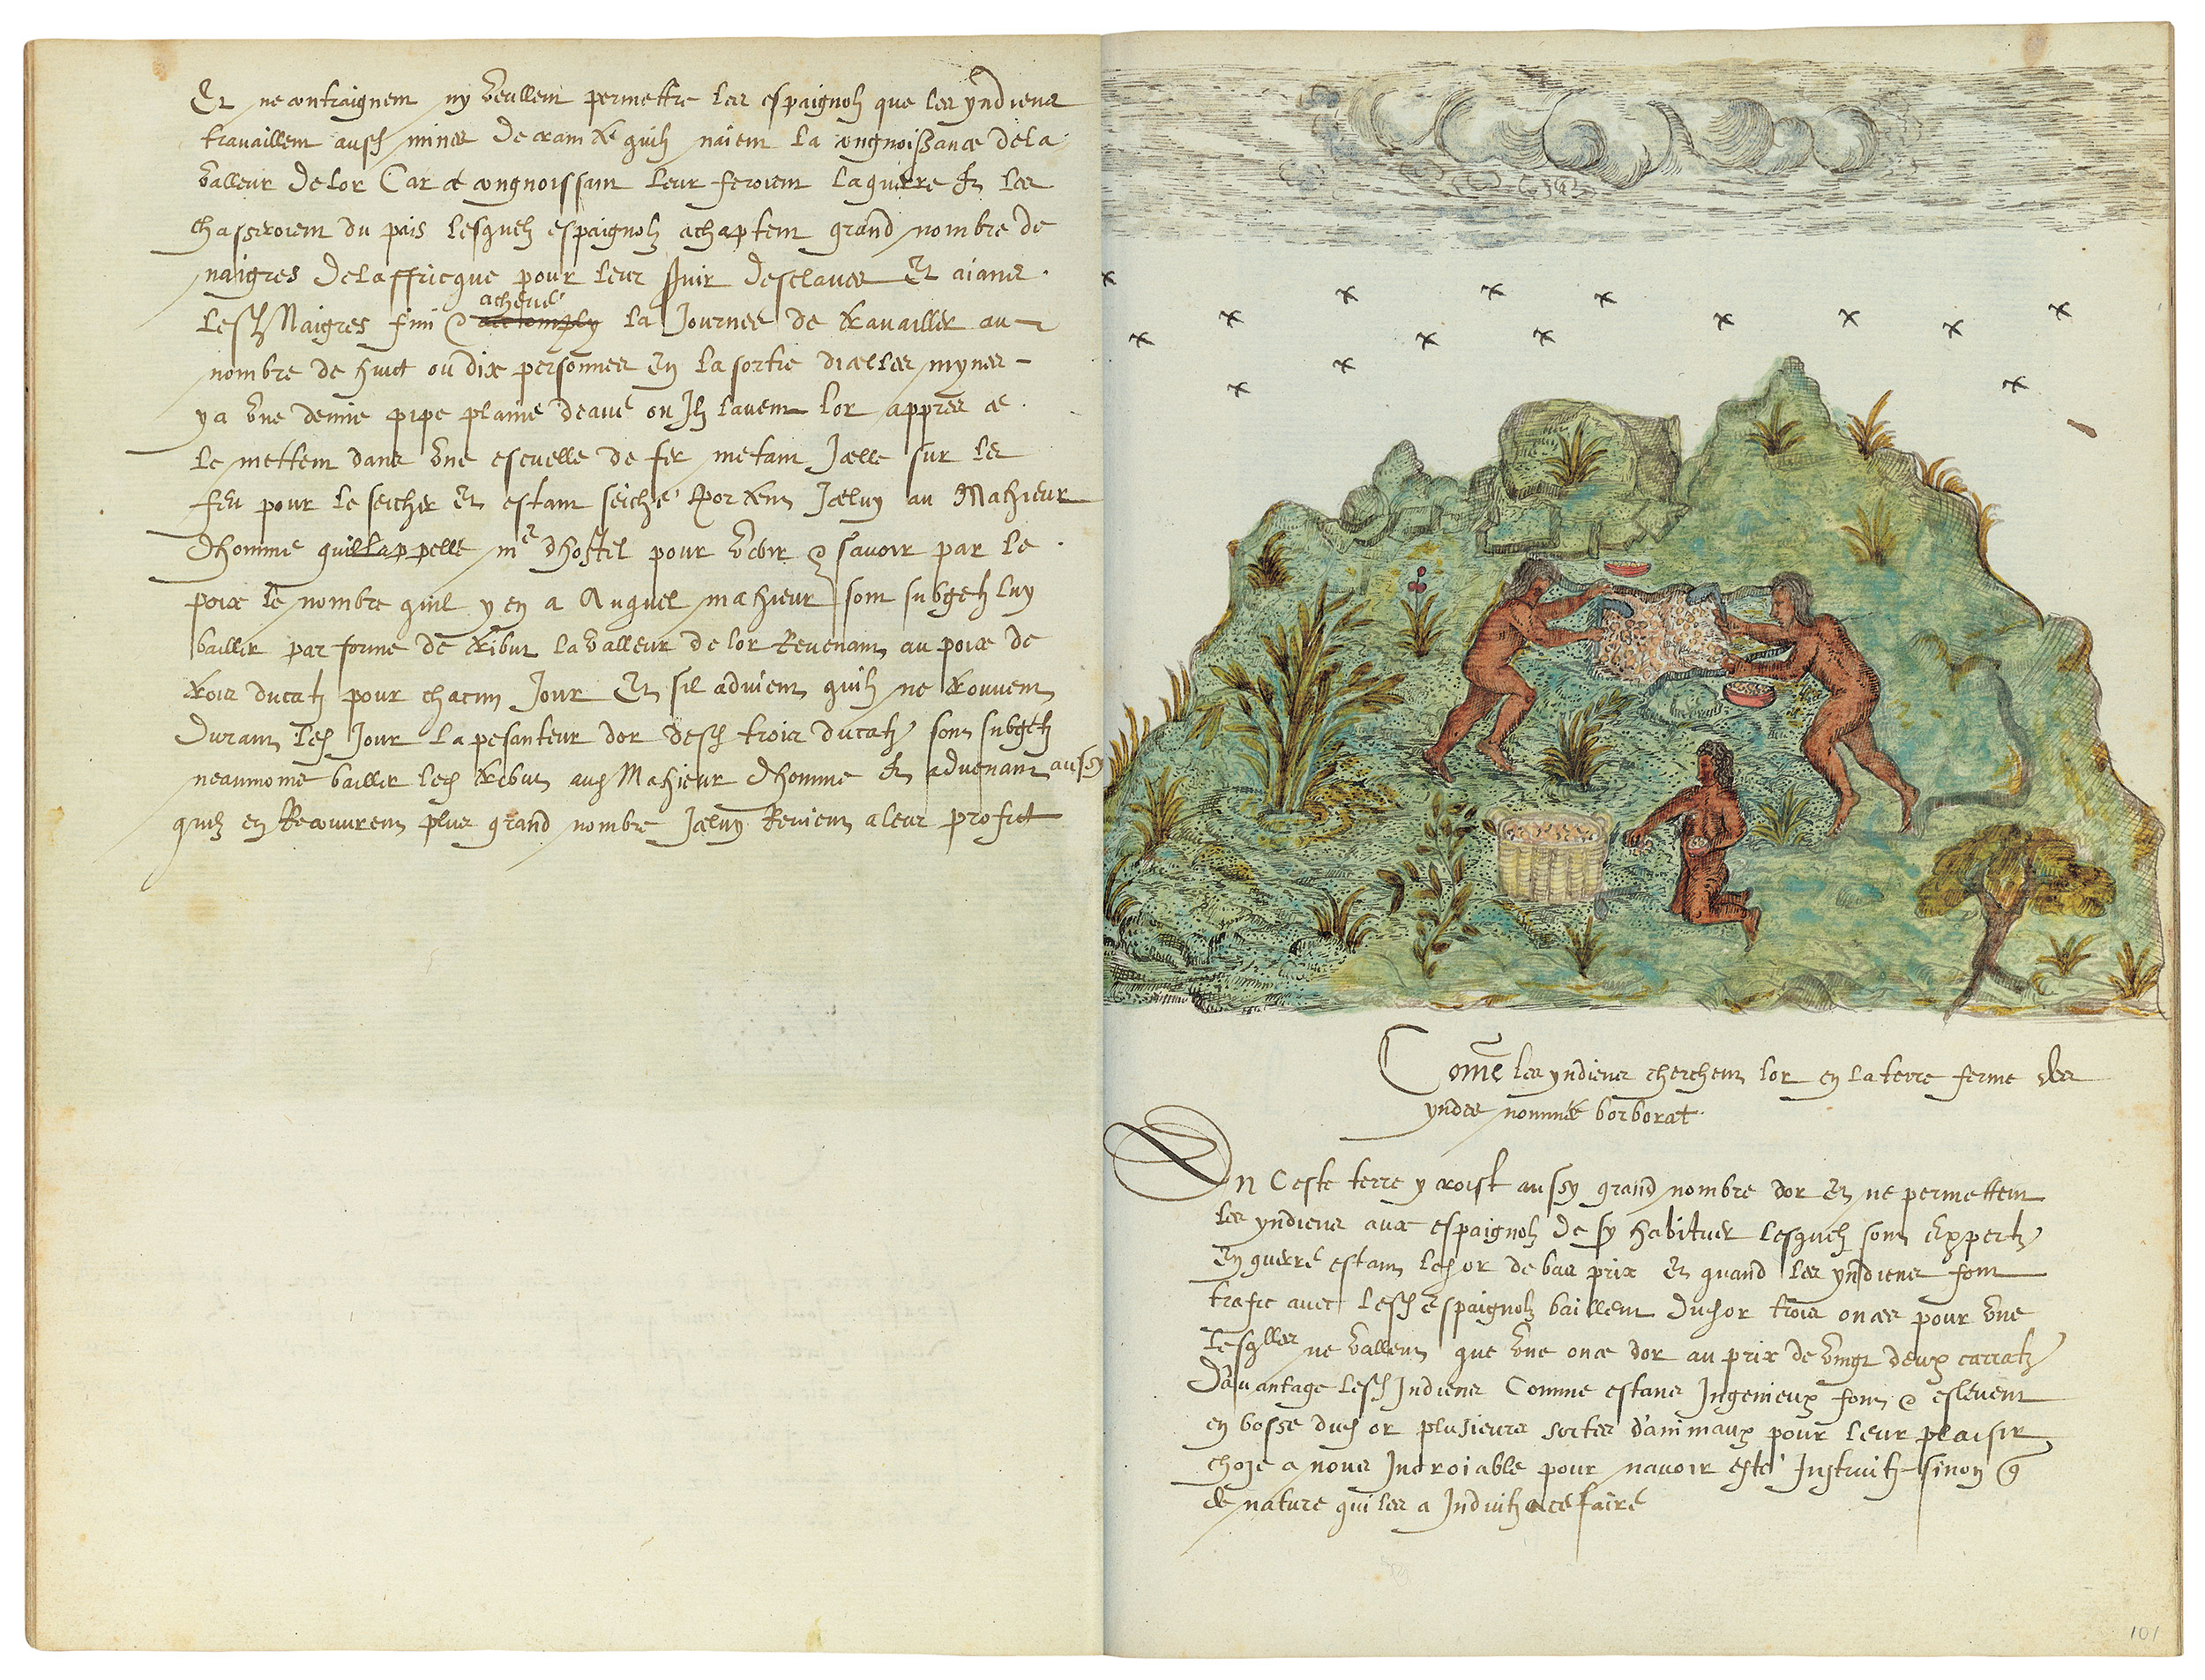 Et ne contraignent ny veullent permettre les espaignolz que les yndiens
travaillent ausd mines de crainte quilz naient la congnoissance de la
valleur de lor Car ce congnoissant leur feroient la guerre et les
chasseroient du pais lesquelz espaignolz achaptent grand nombre de
naigres de laffricque pour leur s'vir desclaves Et aians
Lesd Naigres fini & achevé acomply la Journee de travailler au
nombre de huict ou dix personnes en la sortie dicelles mynes
y a une demie pipe plaine deaue ou Ilz lavent lor appres ce
le mettent dans une escuelle de fer metant Icelle sur le
feu pour le seicher Et estant seiché portent Iceluy au Mahieur
dhomme quil lappelle me dhostel pour veoir & savoir par le
poix le nombre quil y en a Auquel mahieur sont subgetz luy
bailler par forme de tribut la valleur de lor Revenant au poix de
trois ducatz pour chacun Jour Et sil advient quilz ne trouvent
Durant led Jour la pesanteur dor desd trois ducatz sont subgetz
neaumoins bailler led tribut aud Mahieur dhomme et advenant aussy
quilz en Recouvrent plus grand nombre Iceluy Revient a leur profict
Come les yndiens cherchent lor en la terre ferme des
yndes nommée borborat
En Ceste terre y croist aussy grand nombre dor Et ne permettent
les yndiens aux espaignolz de sy habituer lesquelz sont expertz
En guerre estant led or de bas prix Et quand les yndiens font
trafic avec lesd Espaignolz baillent dud or trois onces pour une
lesqlles ne vallent que une once dor au prix de vingt deux carratz
Davantage lesd Indiens Comme estans Ingenieux font & eslevent
en bosse dud or plusieurs sortes d'animaux pour leur plaisir
choze a nous Incroiable pour navoir esté Instruitz sinon
de nature qui les a Induitz a ce faire
101